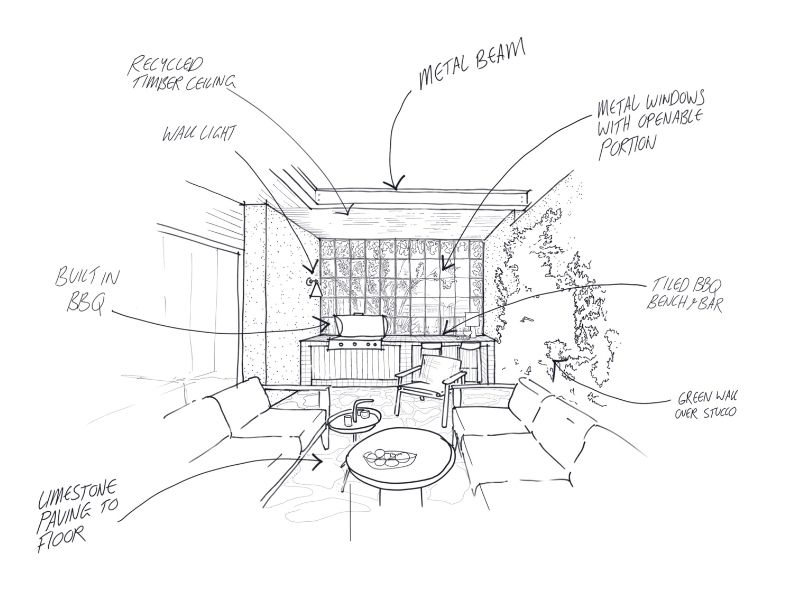 RECYCLED
TIMBER CEILING
METAL BEAM
METAL WINDOWS
WITH OPENABLE
PORTION
WALL LIGHT
BUILT IN
BBQ
TILED BBQ
BENCH & BAR
GREEN WALL
OVER STUCCO
LIMESTONE
PAVING TO
FLOOR